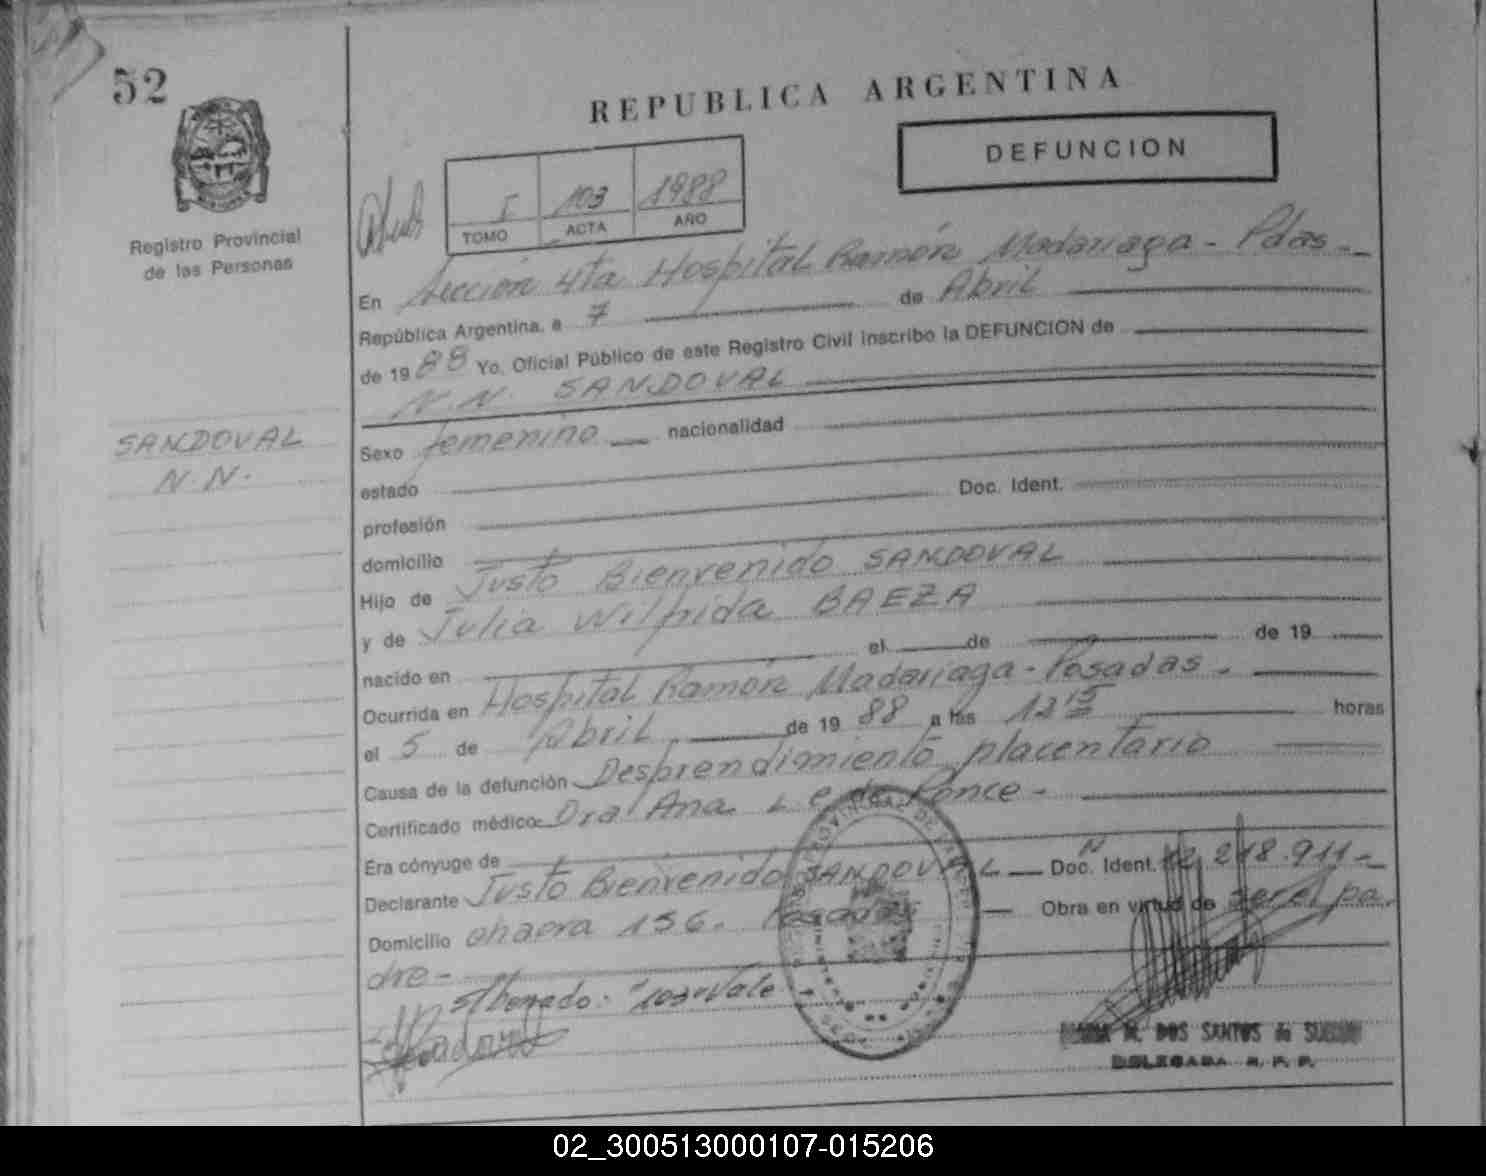 52
REPUBLICA ARGENTINA
DEFUNCION
I 103 1988
TOMO ACTA AÑO
Registro Provincial
de las Personas
En Sección 4ta Hospital Ramón Madariaga - Pdas -
República Argentina, a 7 de Abril
de 19 88 Yo, Oficial Público de este Registro Civil inscribo la DEFUNCION de
N.N. SANDOVAL
SANDOVAL
N.N.
Sexo femenino nacionalidad
estado
profesión Doc. Ident.
domicilio
Hijo de Justo Bienvenido SANDOVAL
y de Julia Wilfrida BAEZA
nacido en el de de 19
Ocurrida en Hospital Ramón Madariaga - Posadas -
el 5 de Abril de 19 88 a las 12 15 horas
Causa de la defunción Desprendimiento placentario
Certificado médico: Dra Ana L e de Ponce -
Era cónyuge de
Declarante Justo Bienvenido SANDOVAL Doc. Ident. N 12.218.911 -
Domicilio chacra 156. Posadas Obra en virtud de ser el pa-
dre -
S/borrado: "103" Vale
DOS SANTOS de
DELEGADA R. P. P.
02_300513000107-015206